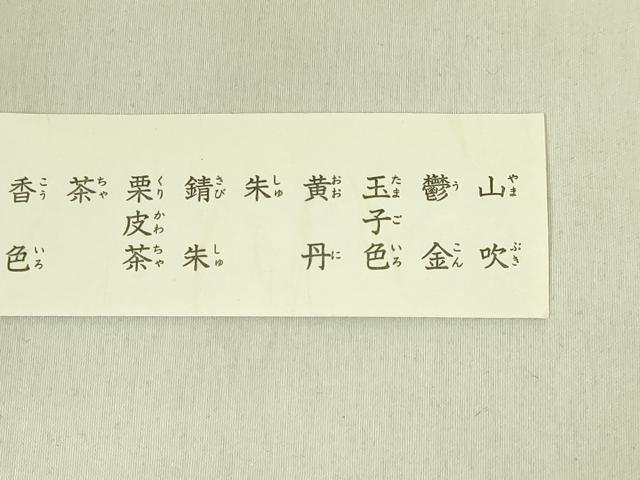 山吹 やまぶき
鬱金 うこん
玉子色 たまごいろ
黄丹 おおに
朱 しゅ
錆朱 さびしゅ
栗皮茶 くりかわちゃ
茶 ちゃ
香色 こういろ